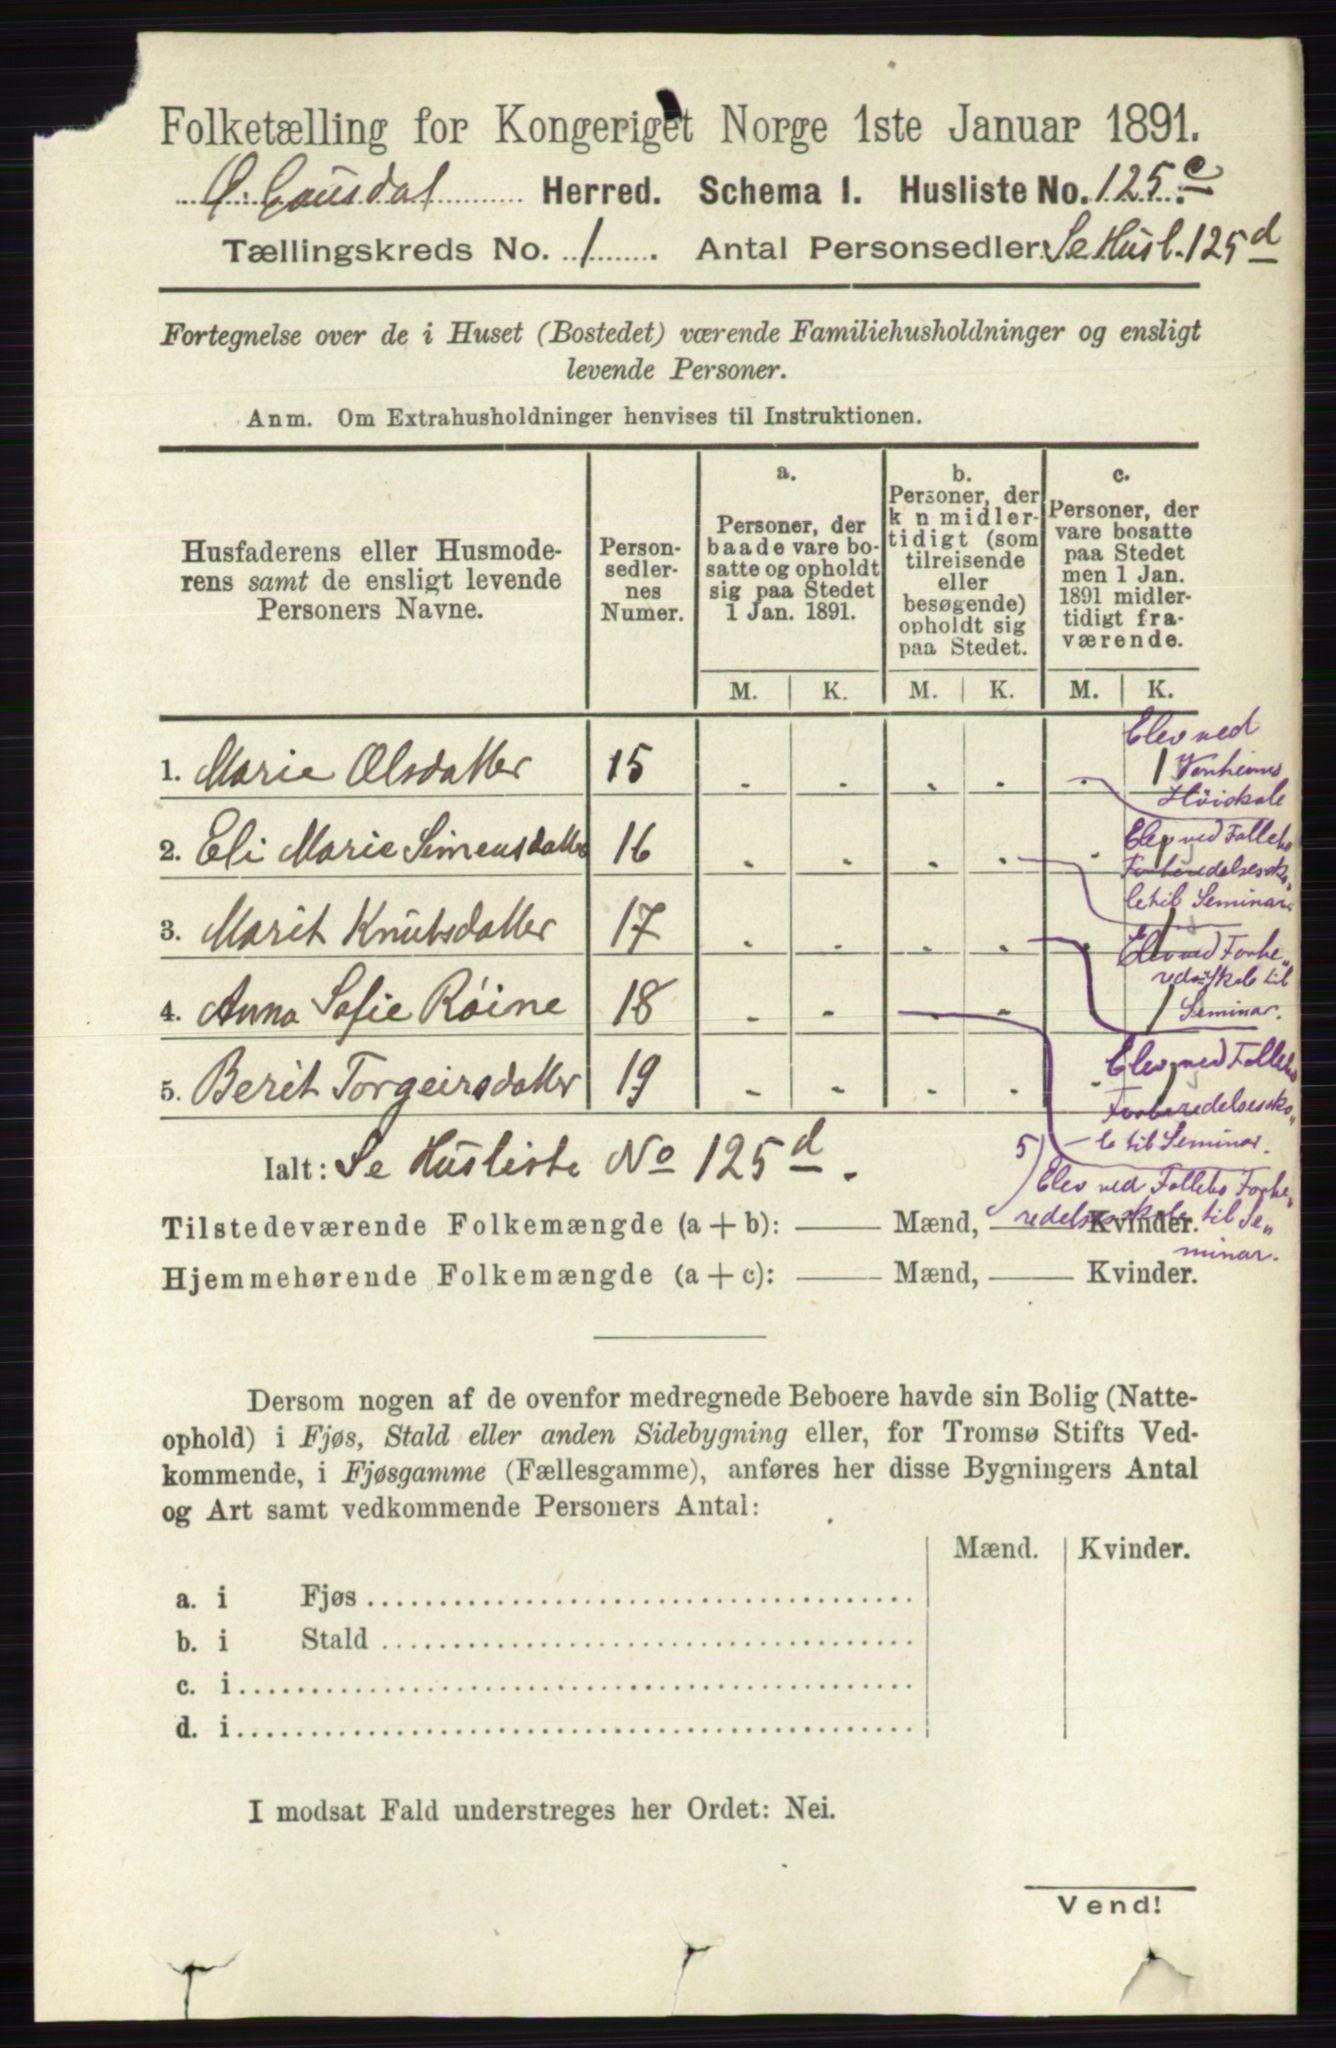 Folketælling for Kongeriget Norge 1ste Januar 1891.
Ø. Gausdal Herred. Schema 1. Husliste No. 125 c
Tællingskreds No. 1. Antal Personsedler: Se Husl. 125 d
Fortegnelse over de i Huset (Bostedet) værende Familiehusholdninger og ensligt
levende Personer.
Anm. Om Extrahusholdninger henvises til Instruktionen.
Husfaderens eller Husmode-
rens samt de ensligt levende
Personers Navne.
Person-
sedler-
nes
Numer.
a.
Personer, der
baade vare bo-
satte og opholdt
sig paa Stedet
1 Jan. 1891.
b.
Personer, der
k n midler-
tidigt (som
tilreisende
eller
besøgende)
opholdt sig
paa Stedet.
c.
Personer, der
vare bosatte
paa Stedet
men 1 Jan.
1891 midler-
tidigt fra-
værende.
M. K. M. K. M. K.
1. Marie Olsdatter 15 - - - - - 1
Elev ved
Vonheims
Høiskole
2. Eli Marie Simensdatter 16 - - - - - 1
Elev ved Follebo
Forberedelsessko-
le til Seminar
3. Marit Knutsdatter 17 - - - - - 1
Elev ved Forbe-
redelsskole til
Seminar.
4. Anna Sofie Röine 18 - - - - 1
Elev ved Follebo
Forberedelsessko-
le til Seminar.
5. Berit Torgeirsdatter 19 - - - - - 1
5) Elev ved Follebo Forbe-
redelsesskole til Se-
minar.
Ialt: Se Husliste No 125 d.
Tilstedeværende Folkemængde (a + b): — Mænd, — Kvinder.
Hjemmehørende Folkemængde (a + c): — Mænd, — Kvinder.
Dersom nogen af de ovenfor medregnede Beboere havde sin Bolig (Natte-
ophold) i Fjøs, Stald eller anden Sidebygning eller, for Tromsø Stifts Ved-
kommende, i Fjøsgamme (Fællesgamme), anføres her disse Bygningers Antal
og Art samt vedkommende Personers Antal:
Mænd. Kvinder.
a. i Fjøs
b. i Stald
c. i
d. i
I modsat Fald understreges her Ordet: Nei.
Vend!